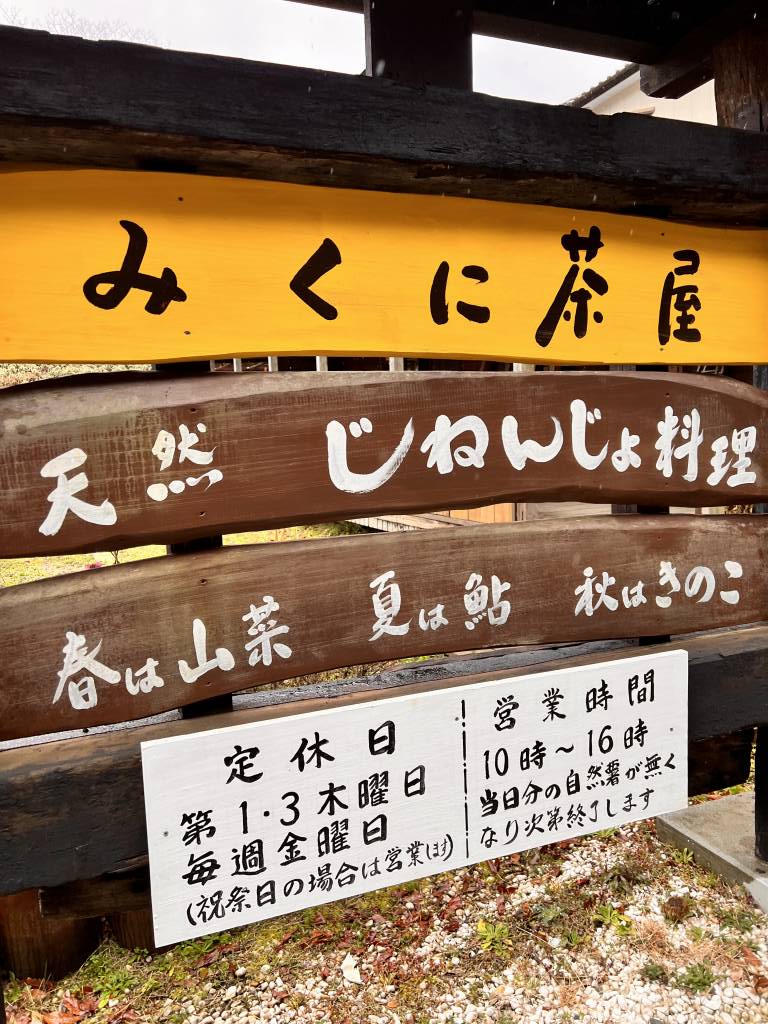 みくに茶屋
天然 じねんじょ料理
春は山菜 夏は鮎 秋はきのこ
定休日
第1・3木曜日
毎週金曜日
(祝祭日の場合は営業します)
営業時間
10時~16時
当日分の自然薯が無く
なり次第終了します